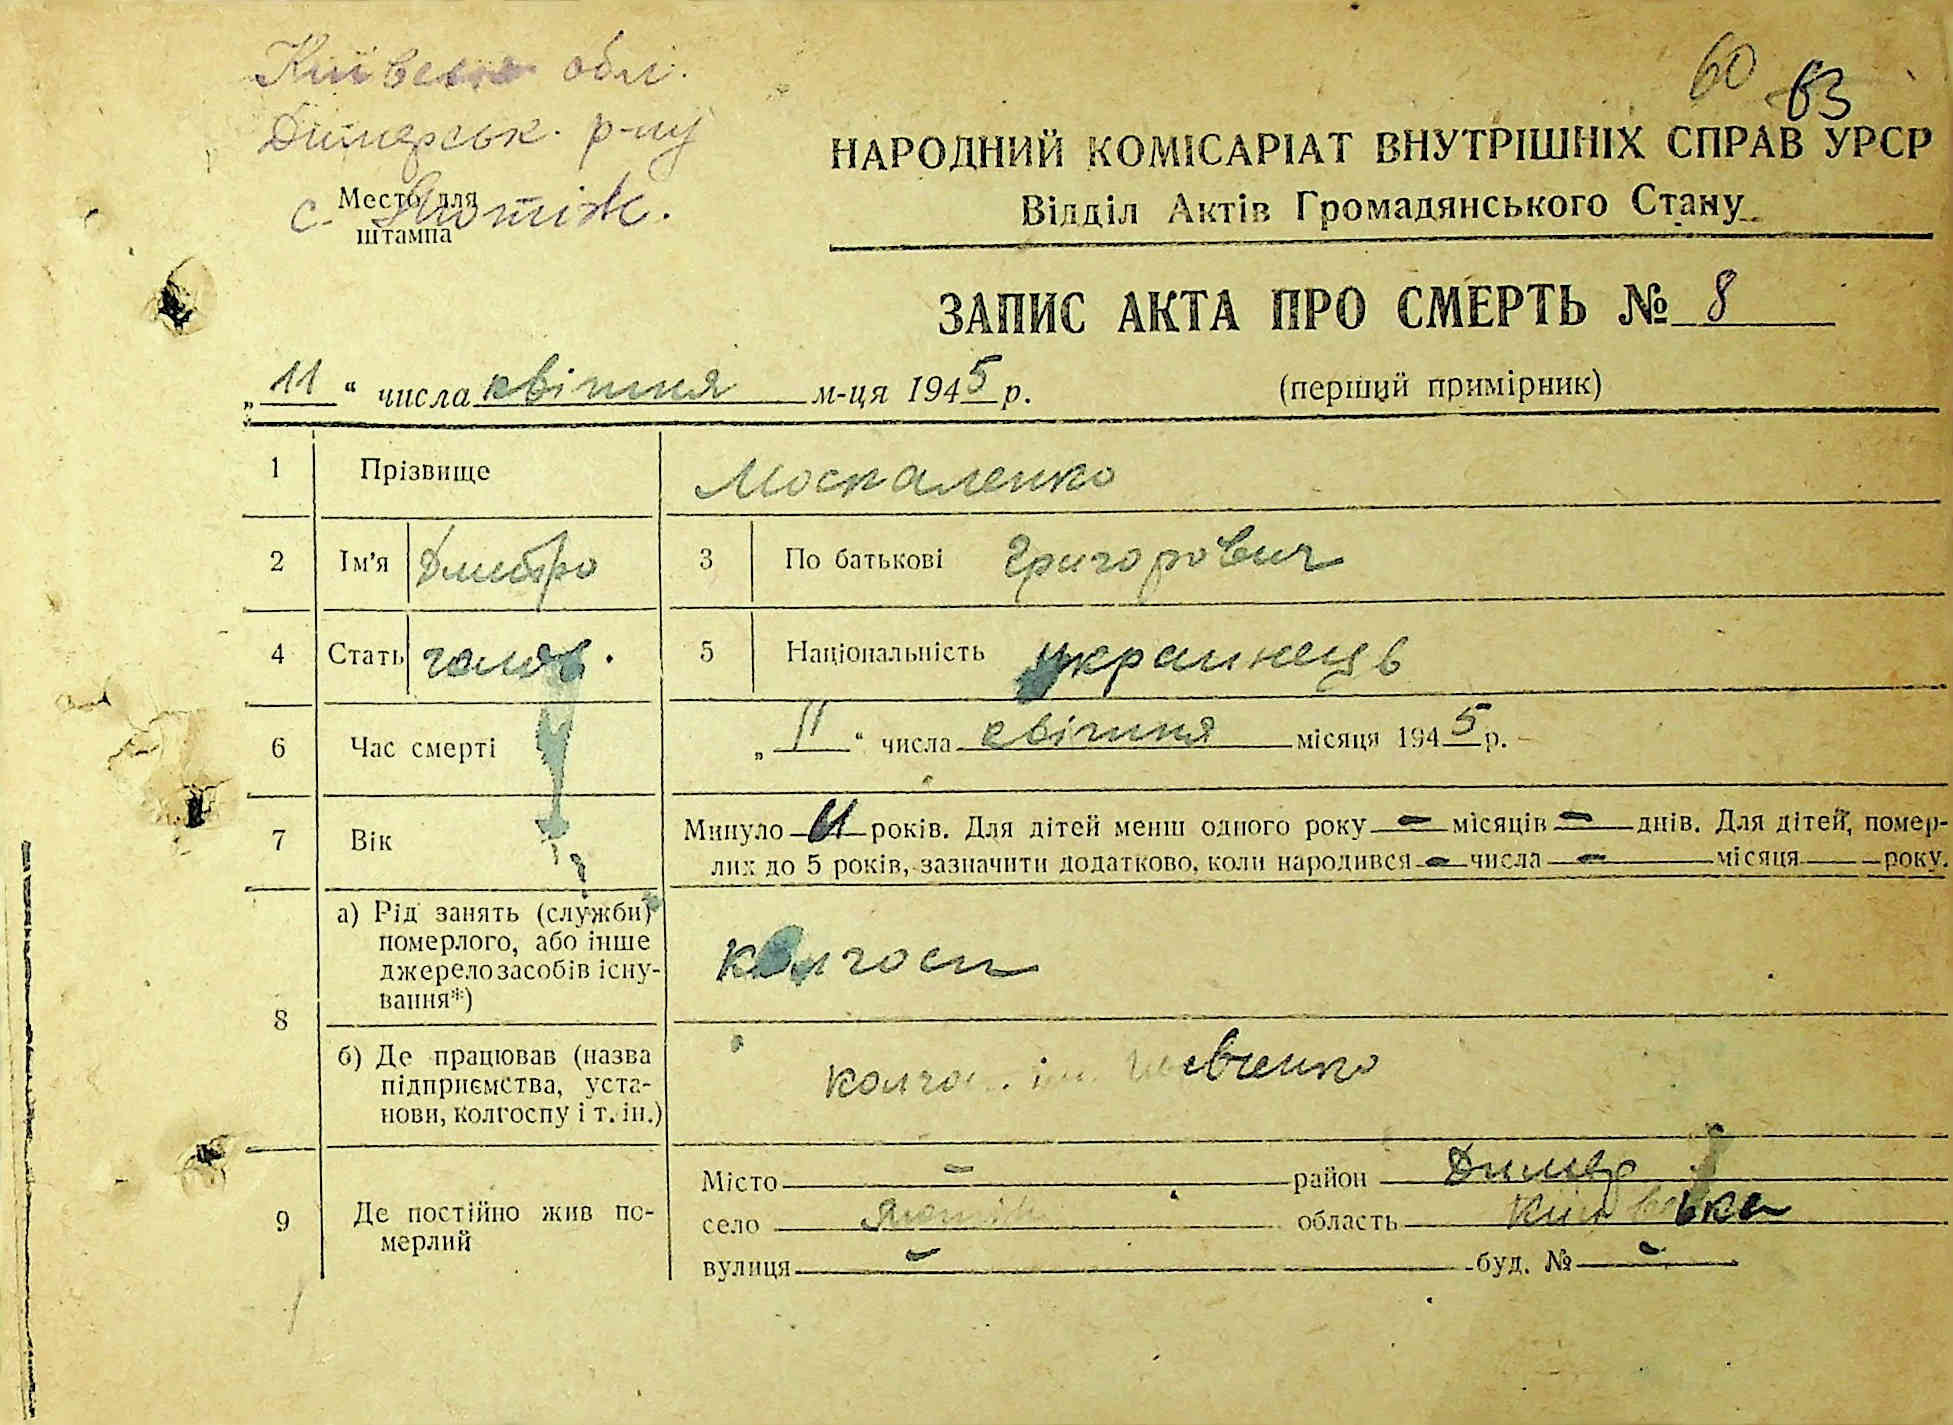 Київська обл.
Димерськ. р-ну
60 63
НАРОДНИЙ КОМІСАРІАТ ВНУТРІШНІХ СПРАВ УРСР
Место для
штампа
с. Ясногі
Відділ Актів Громадянського Стану
ЗАПИС АКТА ПРО СМЕРТЬ № 8
„11“ числа квітня м-ця 1945 р. (перший примірник)
1 Прізвище Москаленко
2 Ім'я Дмитро 3 По батькові Григорович
4 Стать чолов. 5 Національність украинець
6 Час смерті „11“ числа квітня місяця 1945 р.
7 Вік Минуло років. Для дітей менш одного року – місяців – днів. Для дітей, помер-
лих до 5 років, зазначити додатково, коли народився – числа – місяця року.
8 а) Рід занять (служби)
померлого, або інше
джерело засобів існу-
вання*)
колгосп
б) Де працював (назва
підприємства, уста-
нови, колгоспу і т. ін.)
колгосп ім. Шевченко
9 Де постійно жив по-
мерлий
Місто – район Димер
село область Київська
вулиця – буд. № –